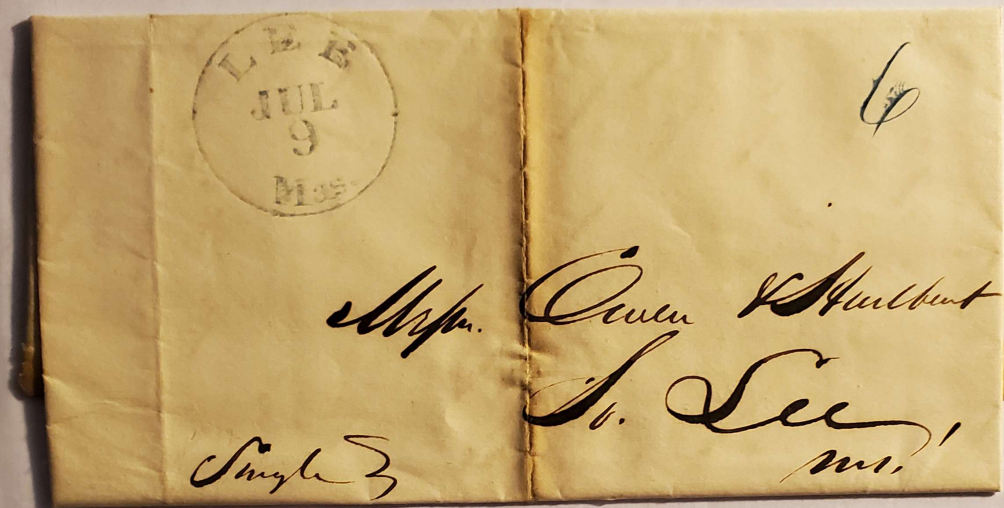 LEE
JUL
9
Mas.
6
Messrs. Owen & Hurlbut
So. Lee,
Ms.
Single